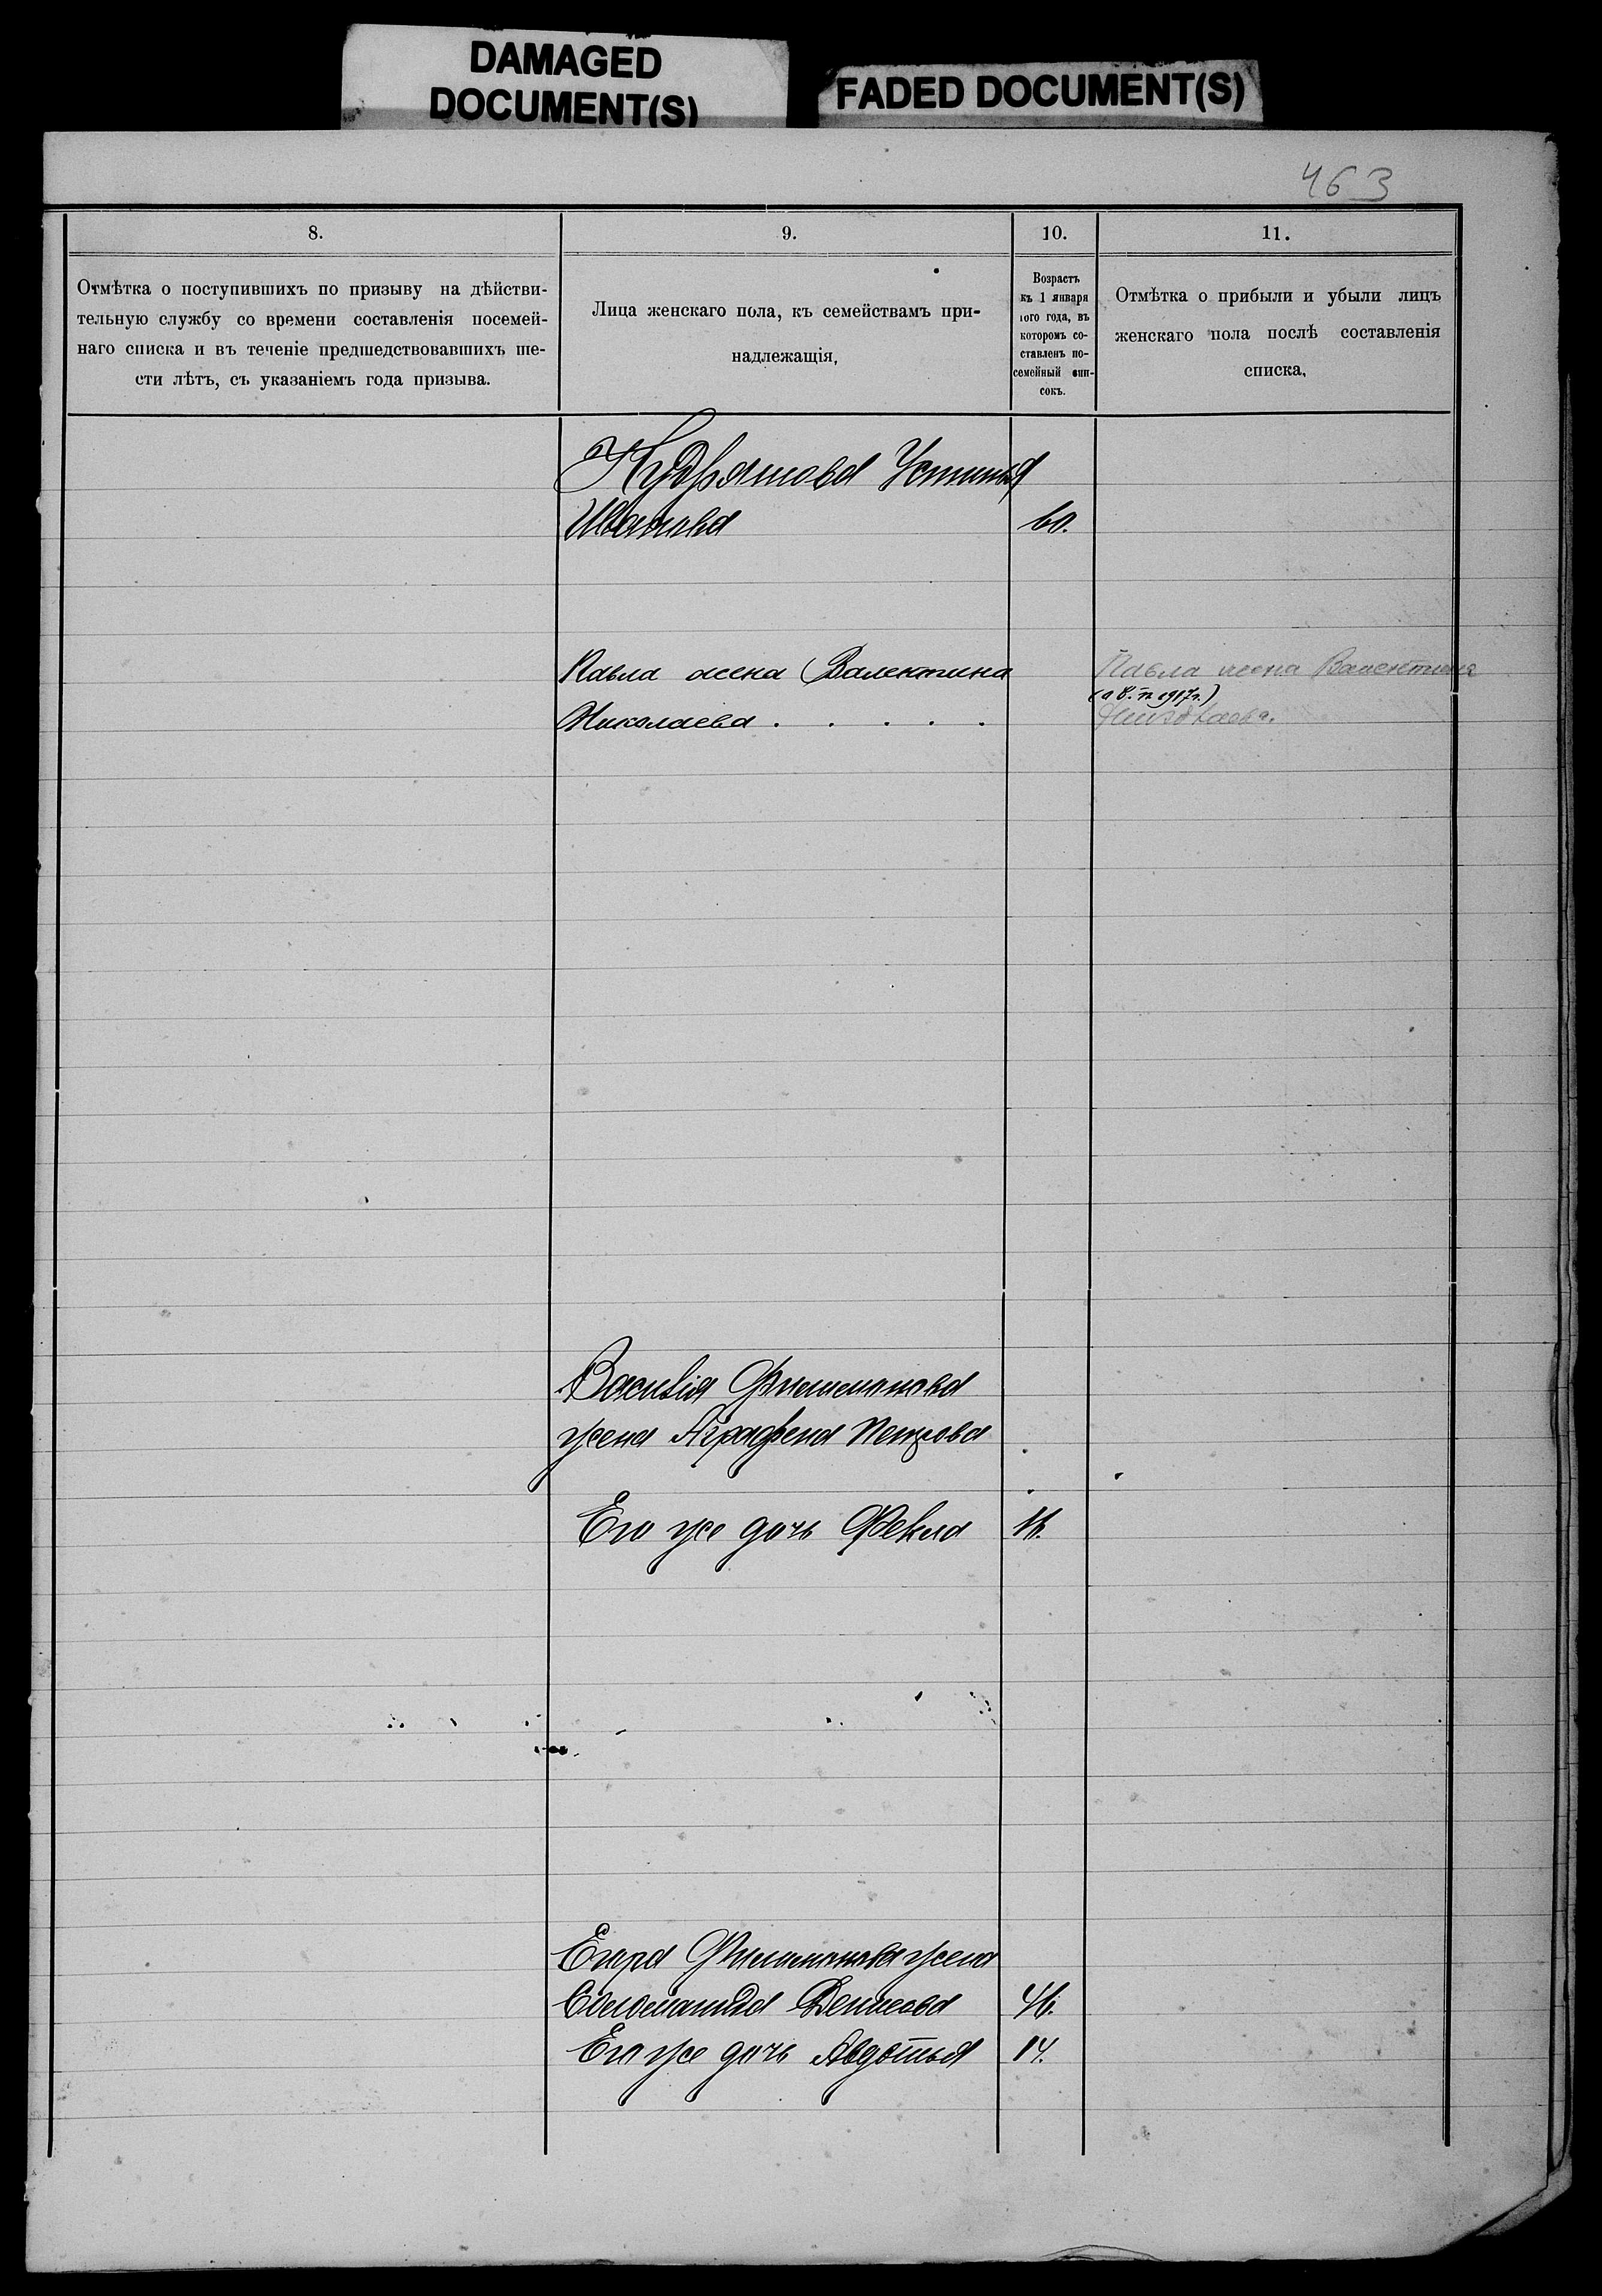 DAMAGED
DOCUMENT(S)
FADED DOCUMENT(S)
463
8.
Отмѣтка о поступившихъ по призыву на дѣйстви-
тельную службу со времени составленія посемей-
наго списка и въ теченіе предшедствовавшихъ ше-
сти лѣтъ, съ указаніемъ года призыва.
9.
Лица женскаго пола, къ семействамъ при-
надлежащія,
10.
Возрастъ
къ 1 января
того года, въ
которомъ со-
ставленъ по-
семейный спи-
сокъ.
11.
Отмѣтка о прибыли и убыли лицъ
женскаго пола послѣ составленія
списка,
Кудряшова Устинья
Иванова 60.
Павла жена Валентина
Николаева . . . . .
Павла жена Валентина
1917г.)
Николаева.
Василія Филимонова
жена Аграфена Петрова
Его же дочь Фекла 16.
Егора Филимонова жена
Денисова 46.
Его же дочь Авдотья 14.